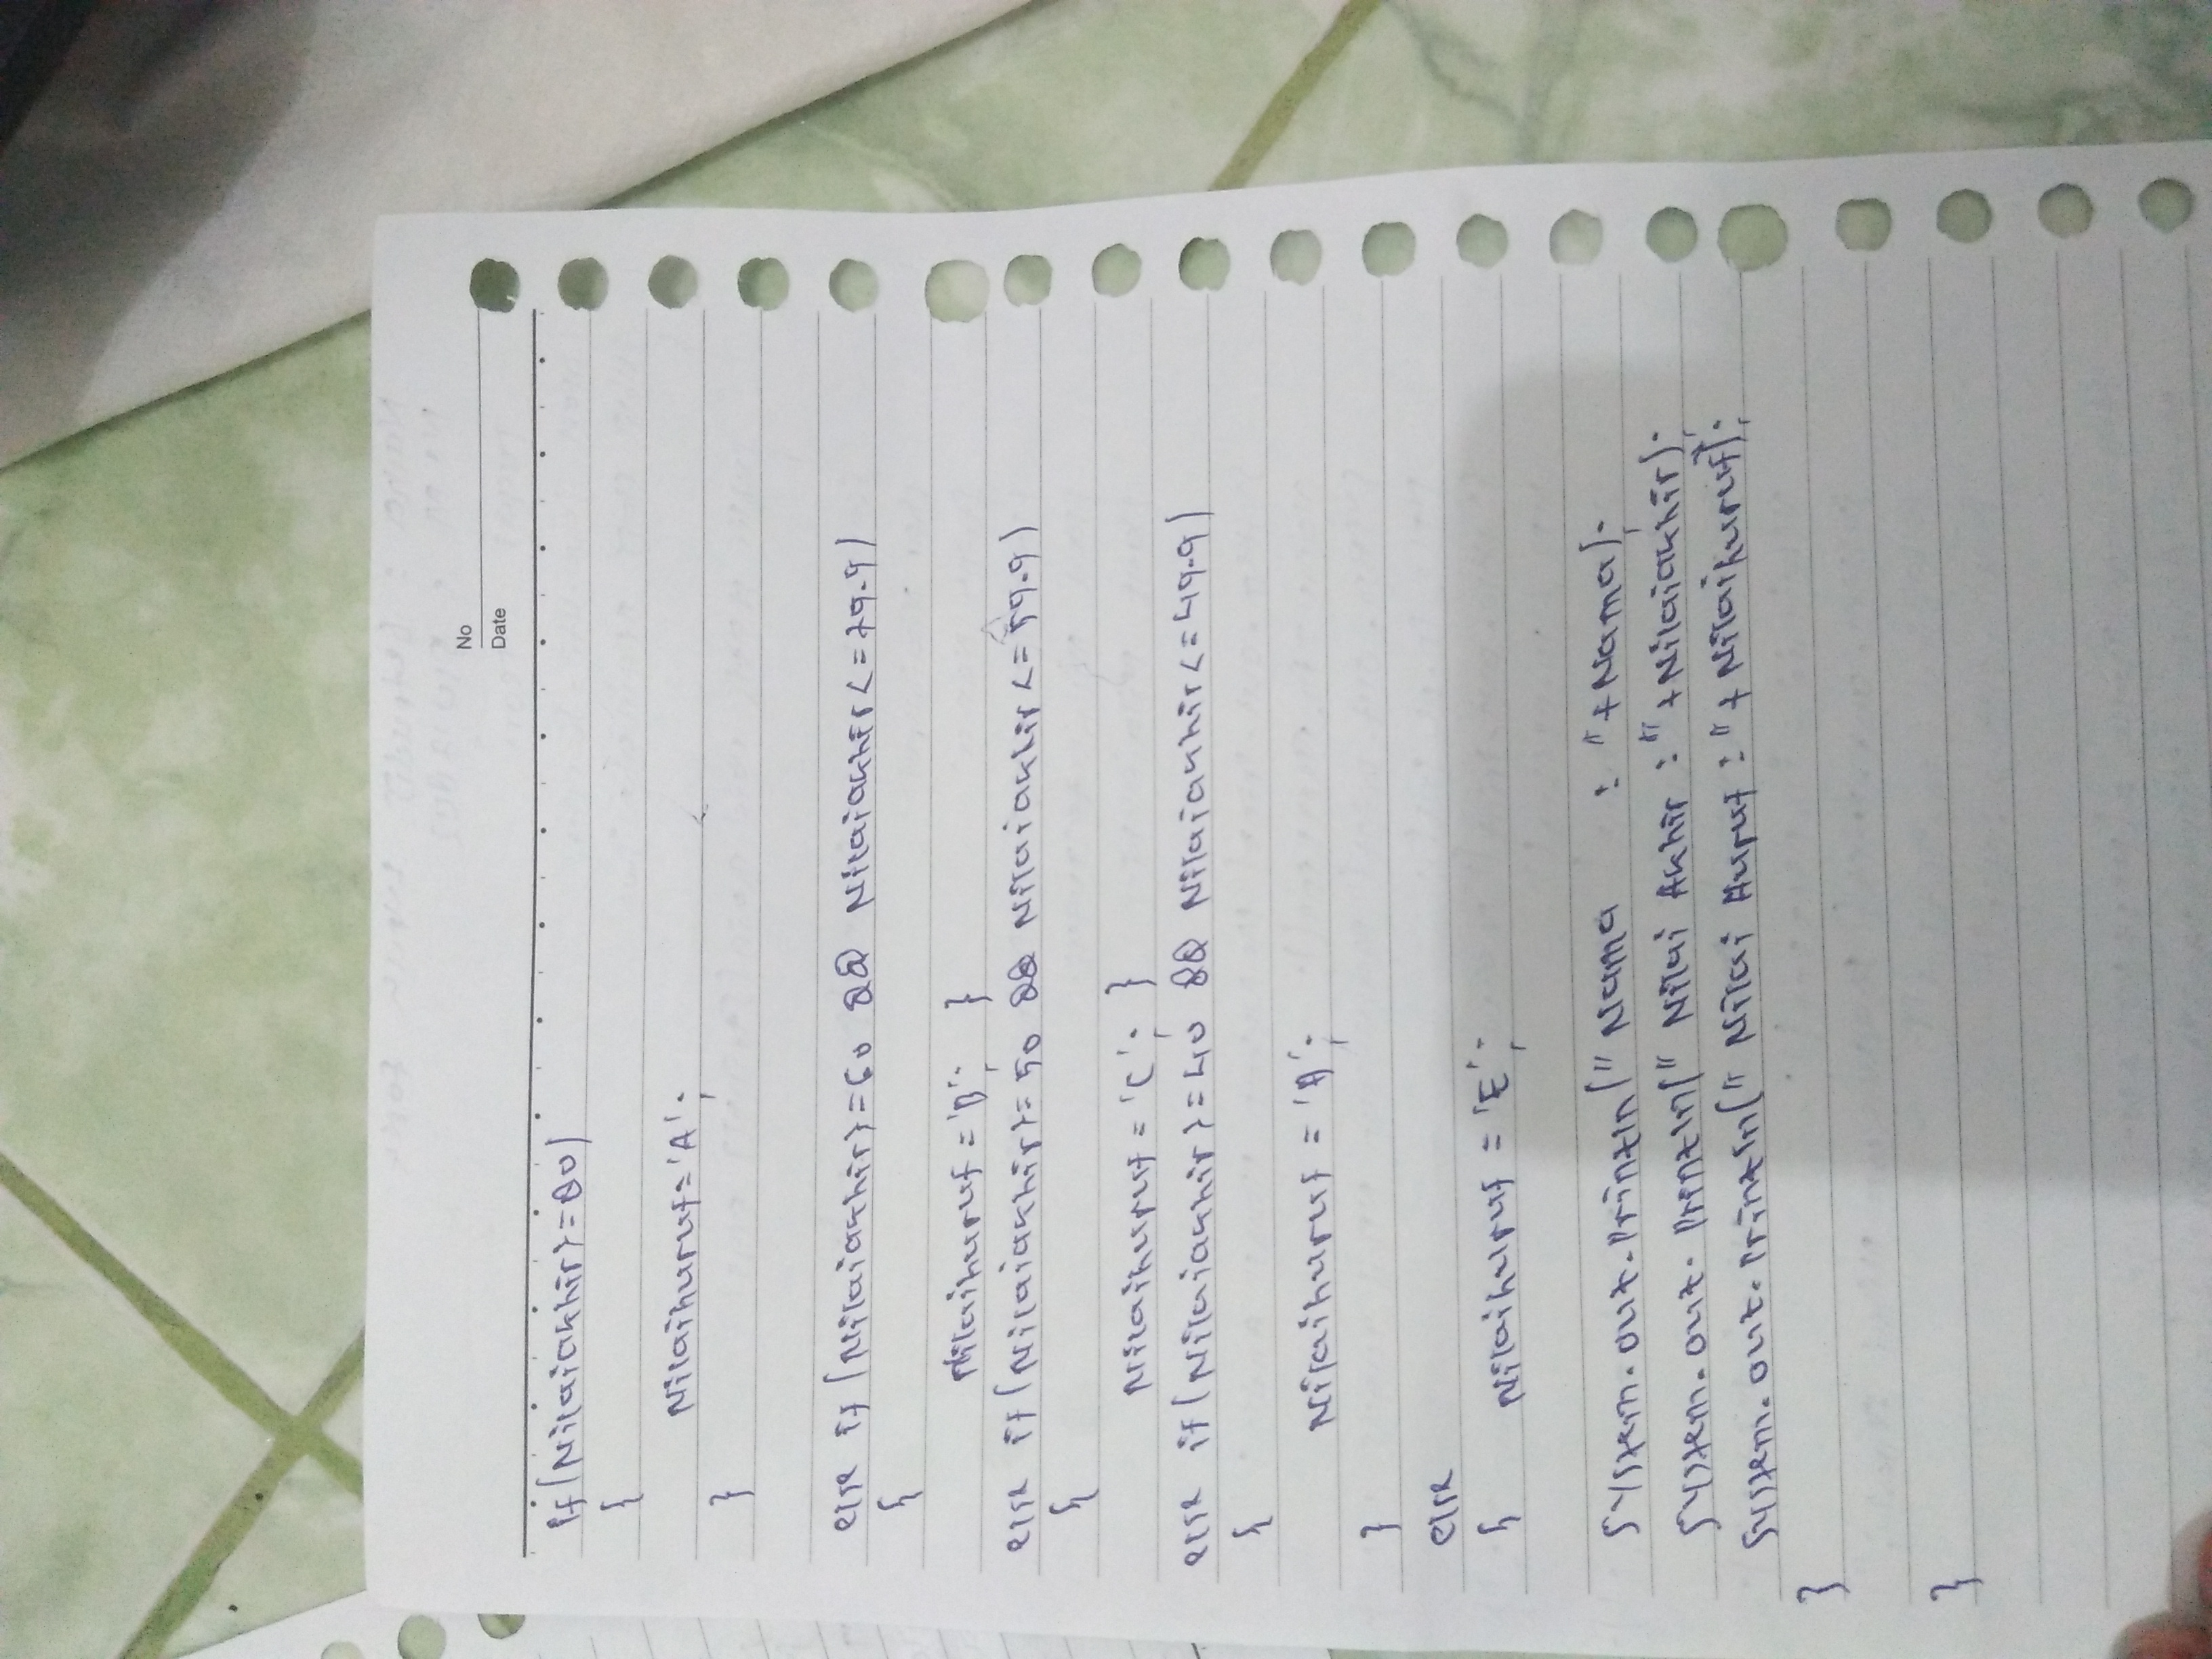 No
Date
if(Nilaiakhir>=80)
{
Nilaihuruf='A';
}
else if(Nilaiakhir>=60 && Nilaiakhir<=79.9)
{
Nilaihuruf='B'; }
else if(Nilaiakhir>=50 && Nilaiakhir<=59.9)
{
Nilaihuruf='C'; }
else if(Nilaiakhir>=40 && Nilaiakhir<=49.9)
{
Nilaihuruf = 'D';
}
else
{ Nilaihuruf = 'E';
System.out.println("Nama : "+Nama);
System.out.println("Nilai Akhir : "+Nilaiakhir);
System.out.println("Nilai Huruf : "+Nilaihuruf);
}
}